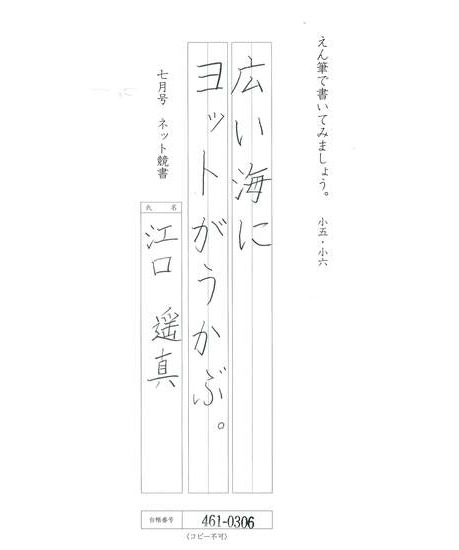 えん筆で書いてみましょう。 小五・小六
広い海に
ヨットがうかぶ。
七月号 ネット競書
氏名
江口 遥真
台帳番号 461-0306
〈コピー不可〉